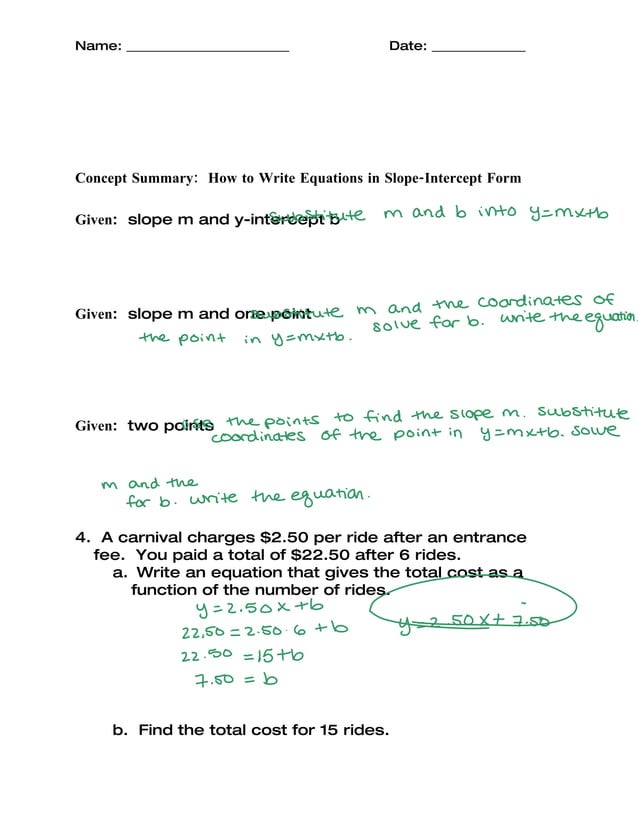 Name: ____________________ Date: ____________
Concept Summary: How to Write Equations in Slope-Intercept Form
Given: slope m and y-intercept b substitute m and b into y=mx+b
Given: slope m and one point substitute m and the coordinates of
the point in y=mx+b. solve for b. write the equation.
Given: two points use the points to find the slope m. substitute
coordinates of the point in y=mx+b. solve
m and the
for b. write the equation.
4. A carnival charges $2.50 per ride after an entrance
fee. You paid a total of $22.50 after 6 rides.
a. Write an equation that gives the total cost as a
function of the number of rides.
y=2.50x+b
22.50=2.50·6+b y=2.50x+7.50
22.50=15+b
7.50=b
b. Find the total cost for 15 rides.